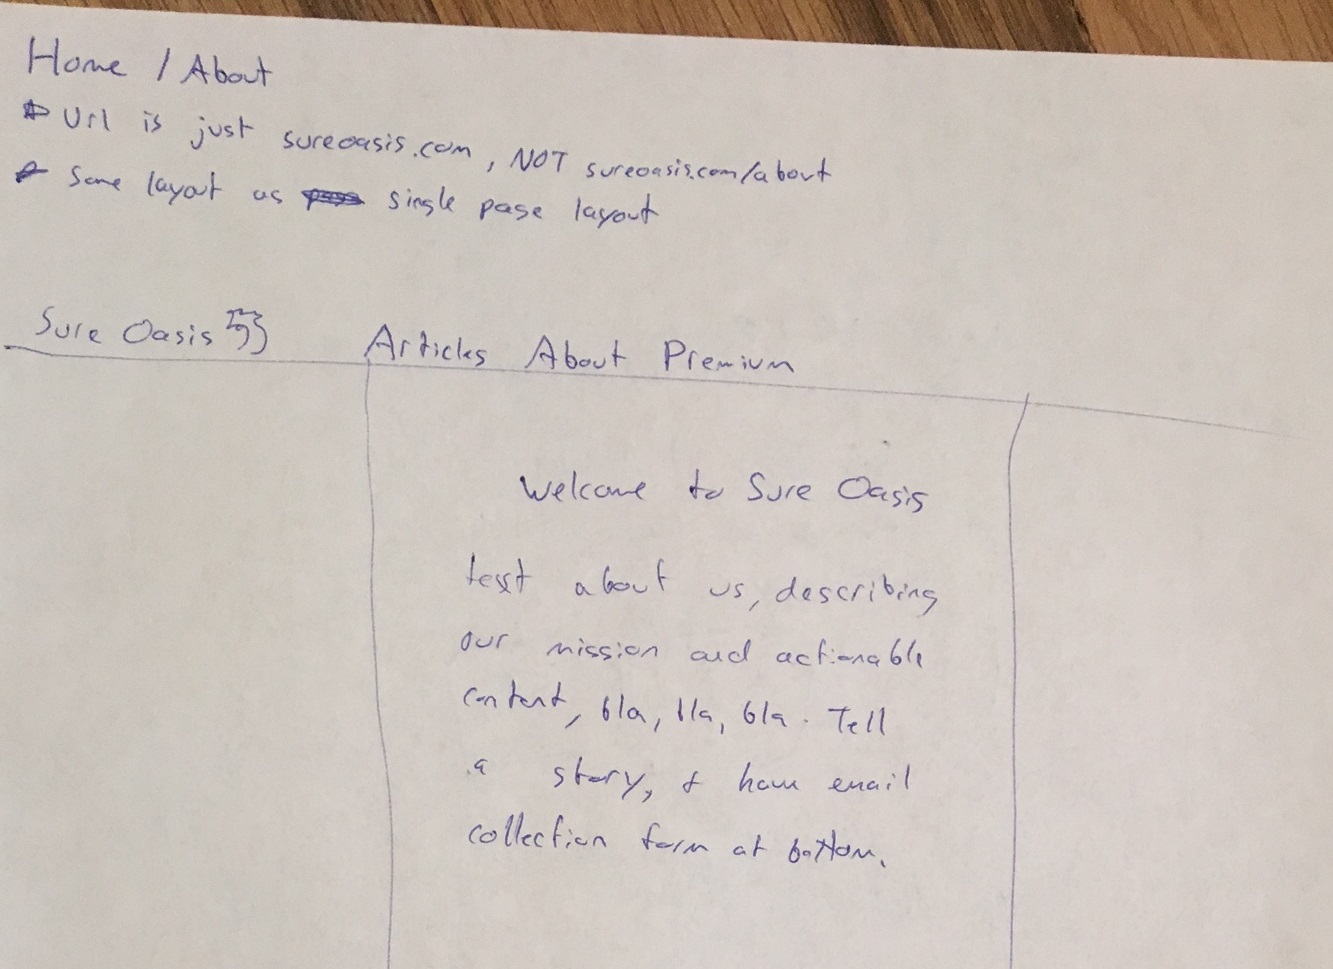 Home / About
Url is just sureoasis.com, NOT sureoasis.com/about
Same layout as single page layout
Sure Oasis Articles About Premium
Welcome to Sure Oasis
text about us, describing
our mission and actionable
content, bla, bla, bla. Tell
a story, & have email
collection form at bottom.